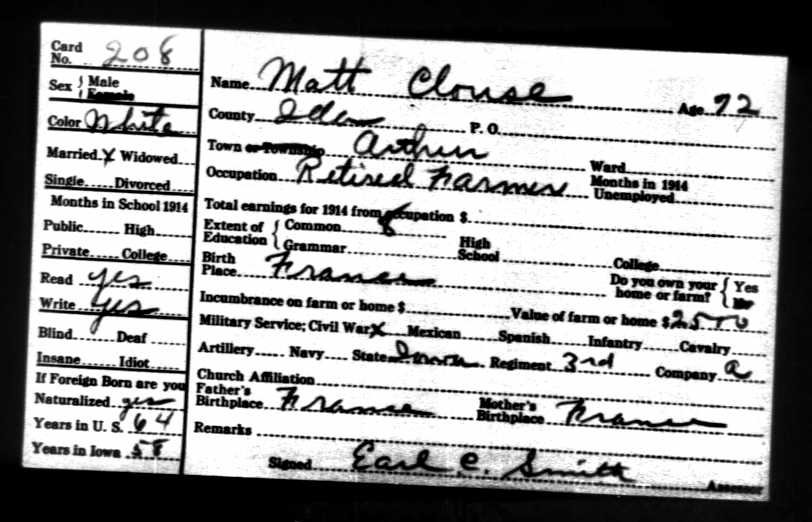 Card No. 208
Sex } Male
Female
Color White
Married X Widowed
Single Divorced
Months in School 1914
Public High
Private College
Read yes
Write yes
Blind Deaf
Insane Idiot
If Foreign Born are you
Naturalized yes
Years in U. S. 64
Years in Iowa 58
Name Matt Clouse Age 72
County Ida P. O.
Town or Township Arthur Ward
Occupation Retired Farmer Months in 1914 Unemployed
Total earnings for 1914 from occupation $
Extent of Education { Common 8
Grammar High School College
Birth Place France Do you own your home or farm? { Yes
No
Incumbrance on farm or home $ Value of farm or home $ 2500
Military Service; Civil War X Mexican Spanish Infantry Cavalry
Artillery Navy State Iowa Regiment 3rd Company A
Church Affiliation
Father's Birthplace France Mother's Birthplace France
Remarks
Signed Earl C. Smith Assessor